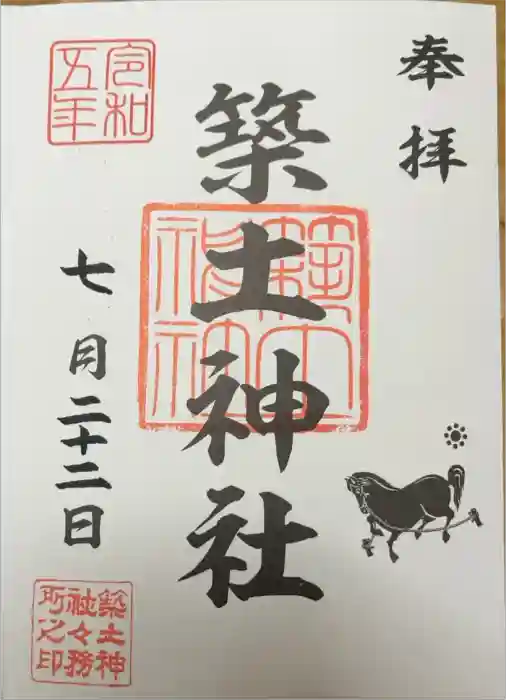 奉拝
築土神社
築土神社
令和五年
七月二十二日
築土神社々務所之印